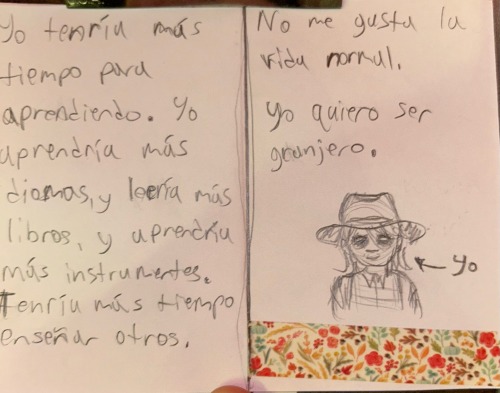 Yo tenría más
tiempo para
aprendiendo. Yo
aprendría más
idiomas, y leería más
libros, y aprendría
más instrumentes.
Tenría más tiempo
enseñar otros.
No me gusta la
vida normal.
Yo quiero ser
granjero.
Yo